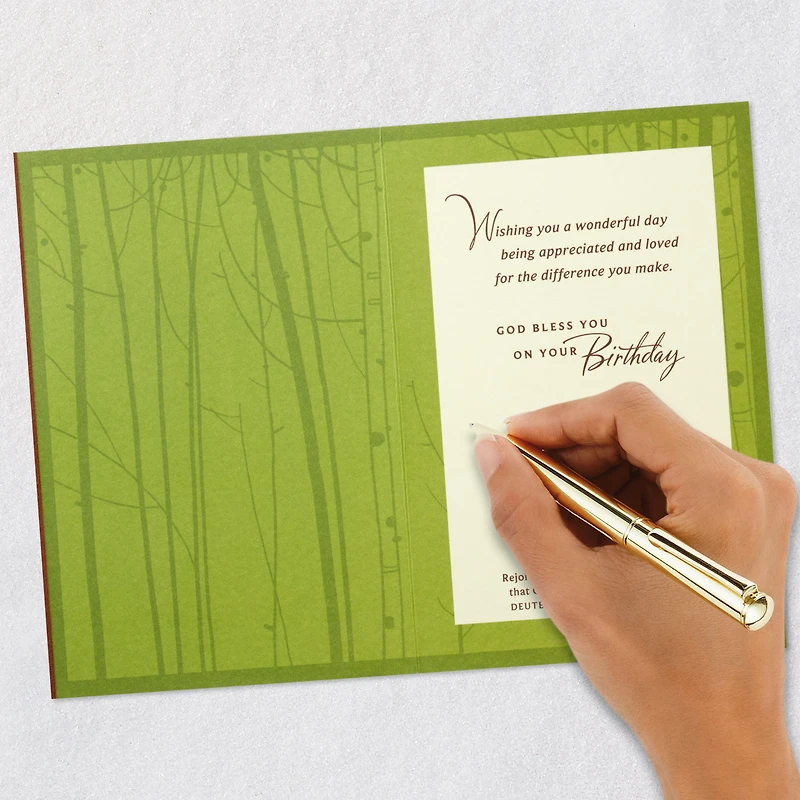 Wishing you a wonderful day
being appreciated and loved
for the difference you make.
GOD BLESS YOU
ON YOUR Birthday
that